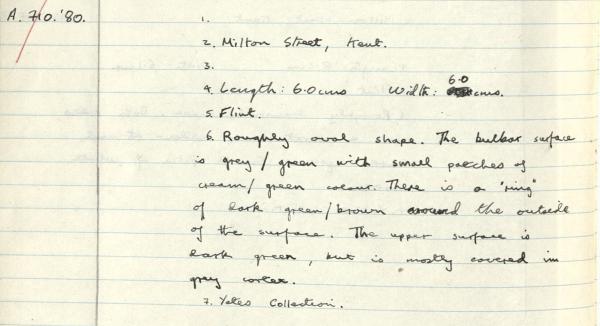 A. 710.'80.
1.
2. Milton Street, Kent.
3.
4. Length: 6.0cms Width: 6.0 cms.
5. Flint.
6. Roughly oval shape. The bulbar surface
is grey / green with small patches of
cream / green colour. There is a "ring"
of dark green / brown around the outside
of the surface. The upper surface is
dark green, but is mostly covered in
grey cortex.
7. Yates Collection.